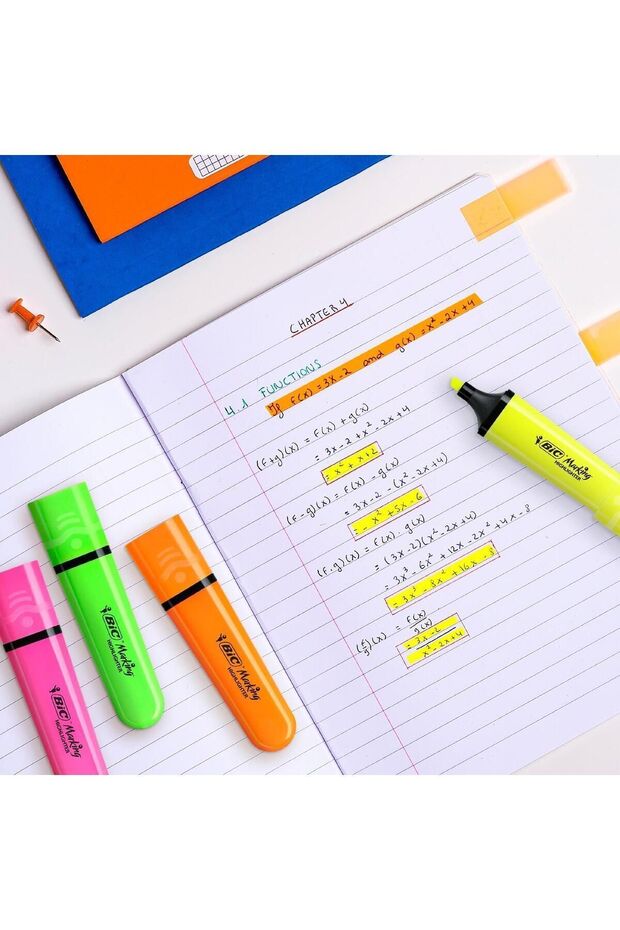 CHAPTER 4
4.1 FUNCTIONS
If f(x) = 3x - 2 and g(x) = x² - 2x + 4
(f+g)(x) = f(x) + g(x)
= 3x - 2 + x² - 2x + 4
= x² + x + 2
(f-g)(x) = f(x) - g(x)
= 3x - 2 - (x² - 2x + 4)
= - x² + 5x - 6
(f·g)(x) = f(x) · g(x)
= (3x - 2)(x² - 2x + 4)
= 3x³ - 6x² + 12x - 2x² + 4x - 8
= 3x³ - 8x² + 16x - 8
(f/g)(x) = f(x)/g(x)
= 3x - 2
x² - 2x + 4
BIC Marking
HIGHLIGHTER
BIC Marking
HIGHLIGHTER
BIC Marking
HIGHLIGHTER
BIC Marking
HIGHLIGHTER